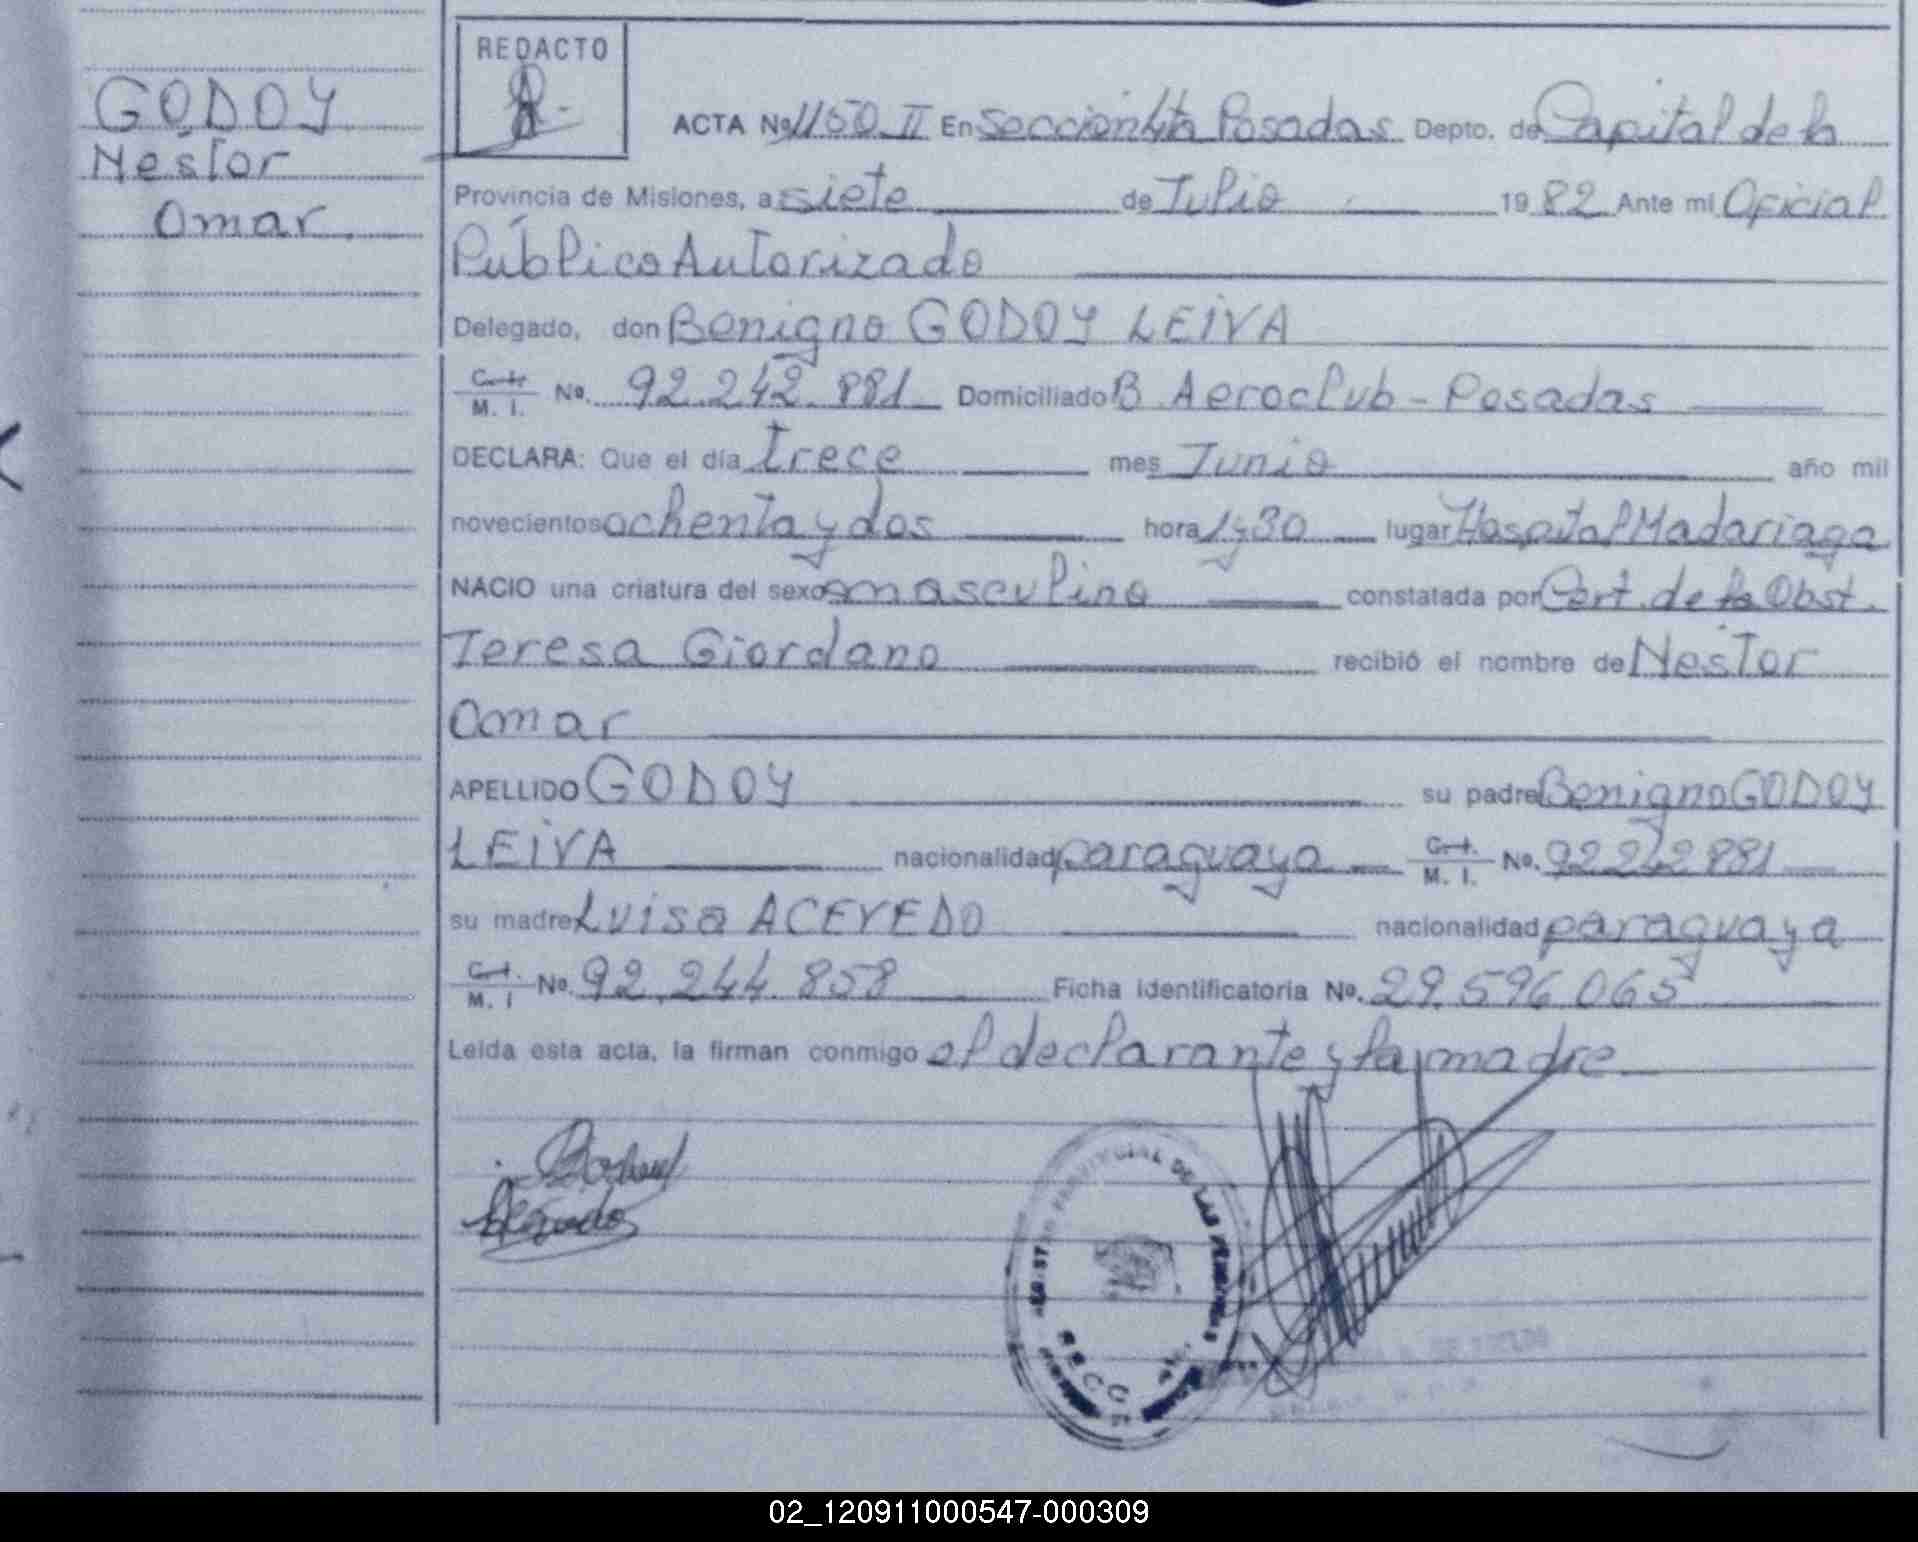 GODOY
Nestor
Omar.
REDACTO
ACTA Nº 1150 II En Sección 4ta Posadas Depto. de Capital de la
Provincia de Misiones, a siete de Julio 1982 Ante mi Oficial
Público Autorizado
Delegado, don Benigno GODOY LEIVA
M. I. Nº. 92.242.881 Domiciliado B. Aeroclub - Posadas
DECLARA: Que el día trece mes Junio año mil
novecientos ochenta y dos hora 1y30 lugar Hospital Madariaga
NACIO una criatura del sexo masculino constatada por Cert. de la Obst.
Teresa Giordano recibió el nombre de Nestor
Omar
APELLIDO GODOY su padre Benigno GODOY
LEIVA nacionalidad paraguaya M. I. Nº. 92242881
su madre Luisa ACEVEDO nacionalidad paraguaya
M. I Nº. 92.244.858 Ficha Identificatoria Nº. 29.596.065
Leída esta acta, la firman conmigo el declarante y la madre
PROVINCIAL DE LAS PERSONAS
02_120911000547-000309